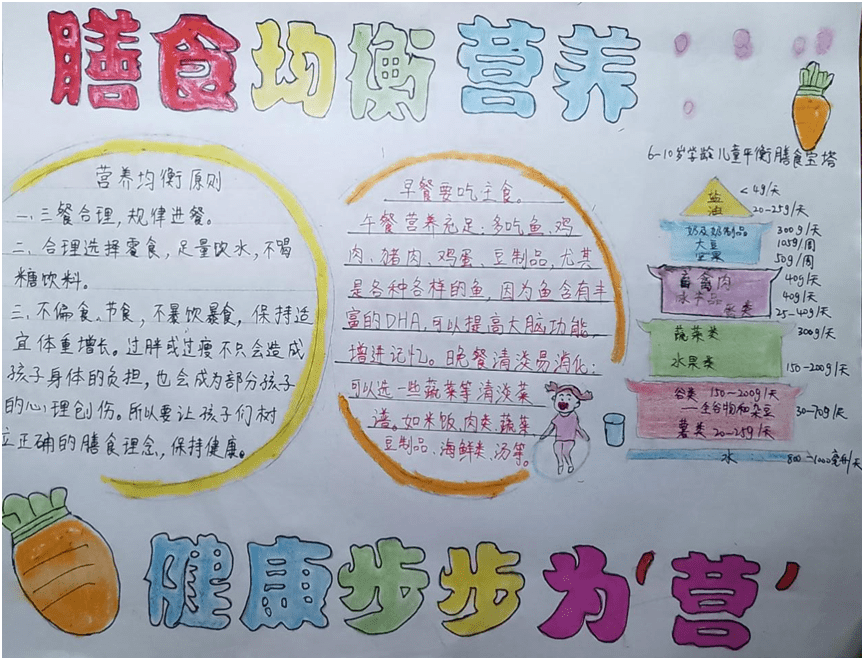 膳食均衡营养
营养均衡原则
一、三餐合理,规律进餐。
二、合理选择零食,足量饮水,不喝
糖饮料。
三、不偏食、节食,不暴饮暴食,保持适
宜体重增长。过胖或过瘦不只会造成
孩子身体的负担,也会成为部分孩子
的心理创伤。所以要让孩子们树
立正确的膳食理念,保持健康。
早餐要吃主食。
午餐营养充足:多吃鱼、鸡
肉、猪肉、鸡蛋、豆制品,尤其
是各种各样的鱼,因为鱼含有丰
富的DHA,可以提高大脑功能,
增进记忆。晚餐清淡易消化:
可以选一些蔬菜等清淡菜
谱。如米饭、肉类、蔬菜
豆制品、海鲜类、汤等。
6-10岁学龄儿童平衡膳食宝塔
盐 <4g/天
油 20-25g/天
奶及奶制品 300g/天
大豆 105g/周
坚果 50g/周
畜禽肉 40g/天
水产品 40g/天
蛋类 25-40g/天
蔬菜类 300g/天
水果类 150-200g/天
谷类 150-200g/天
—全谷物和杂豆 30-70g/天
薯类 20-25g/天
水 800-1000毫升/天
健康步步为'营'